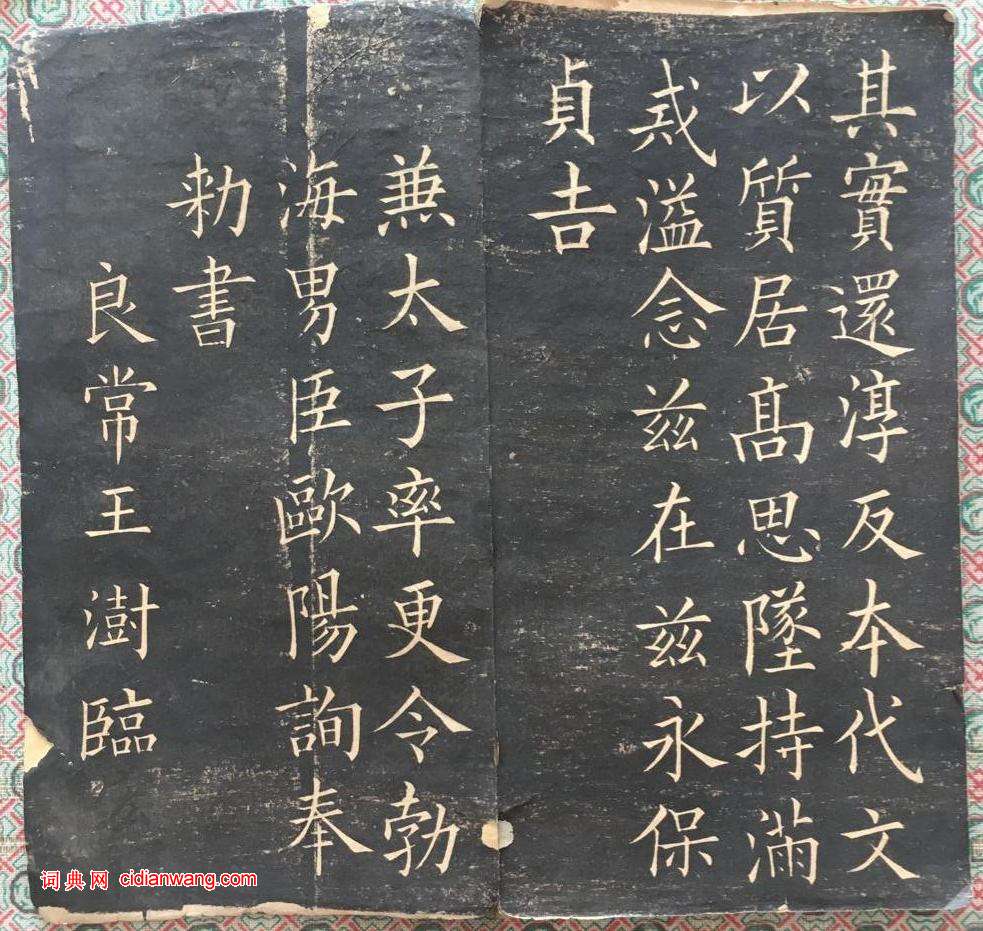 其實還淳反本代文
以質居髙思墜持滿
戒溢念兹在兹永保
貞吉
兼太子率更令勃
海男臣歐陽詢奉
勑書
良常王澍臨
词典网 cidianwang.com